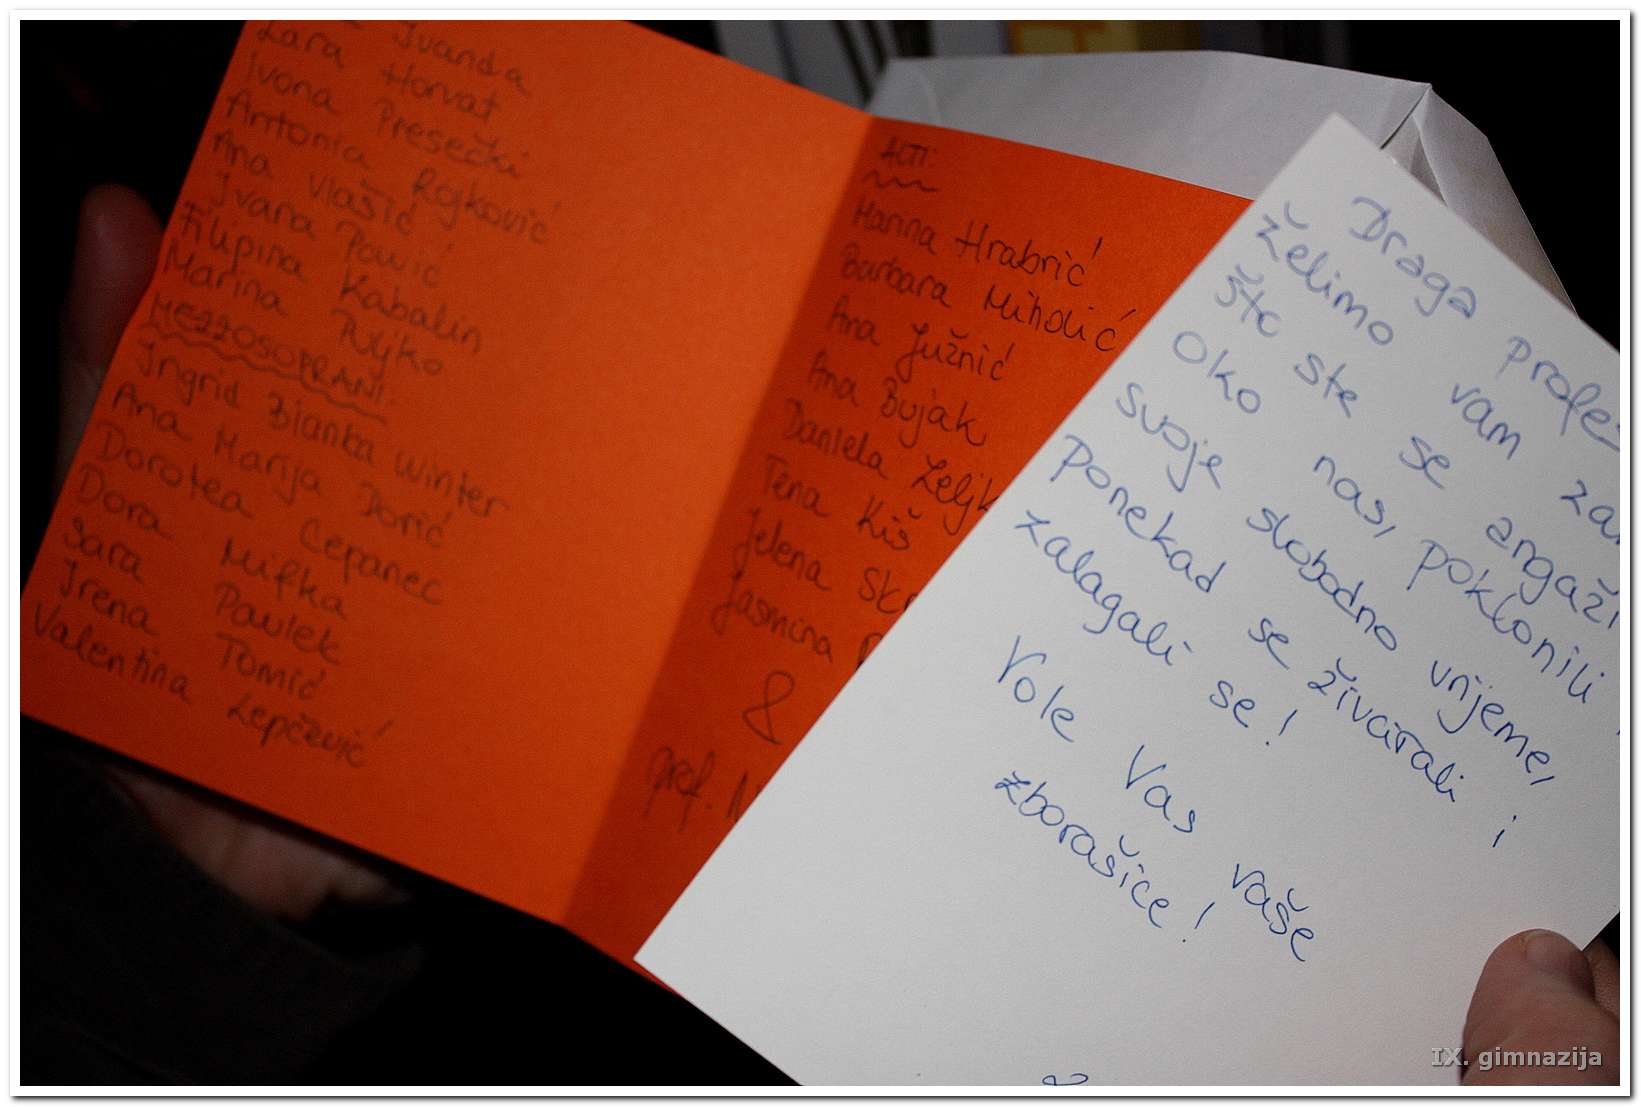 Ivanda
Lara Horvat
Ivona Presečki
Antonia Rojković
Ana Vlašić
Ivana Pavić
Filipina Kabalin
Marina Ryjko
MEZZOSOPRANI:
Ingrid Bianka Winter
Ana Marija Dorić
Dorotea Cepanec
Dora Mifka
Sara Pavlek
Irena Tomić
Valentina Lepčević
ALTI:
Hanna Hrabrić
Barbara Miholić
Ana Južnić
Ana Bujak
Daniela Zeljk
Tena Kiš
Jelena Sk
Jasmina
&
prof.
Draga profe
želimo vam za
što ste se angaži
oko nas, poklonili
svoje slobodno vrijeme,
ponekad se živcirali i
zalagali se!
Vole Vas vaše
zborašice!
IX. gimnazija